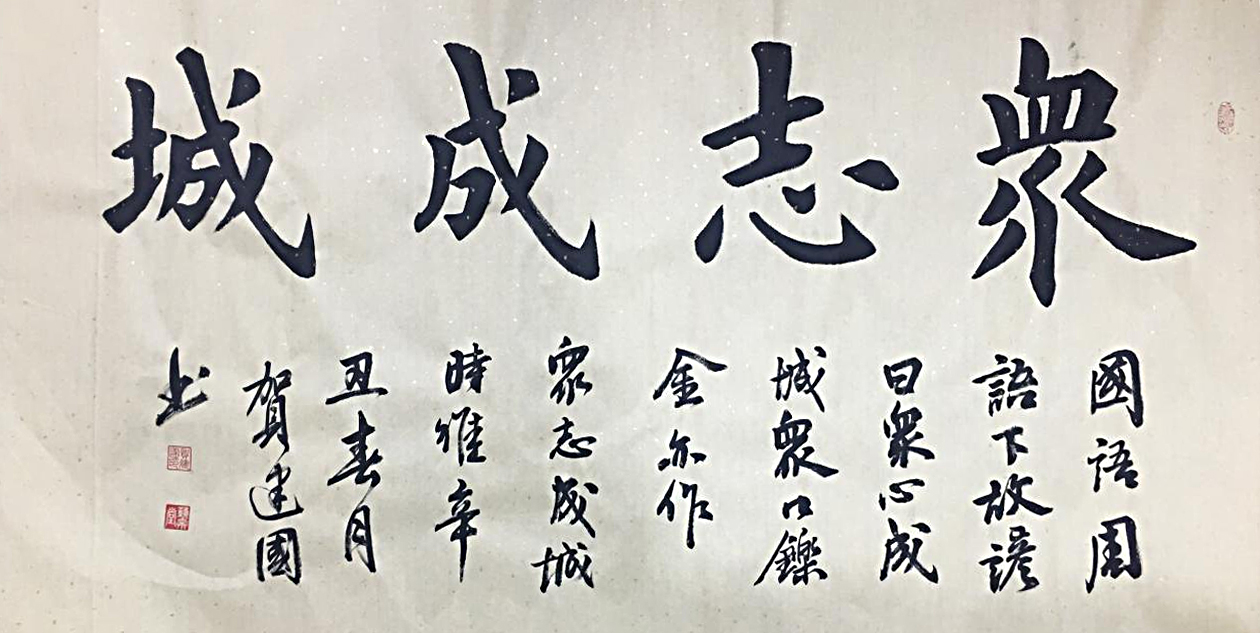 衆志成城
國語周
語下故諺
曰衆心成
城衆口鑠
金亦作
衆志成城
時維辛
丑春月
賀建國
书